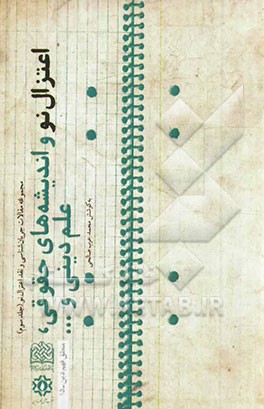 اعتزال نو و اندیشه‌های حقوقی،
علم دینی و ...
مجموعه مقالات جریان‌شناسی و نقد اعتزال نو (جلد سوم)
به کوشش محمد عرب صالحی
منطق فهم دین - ۱۵